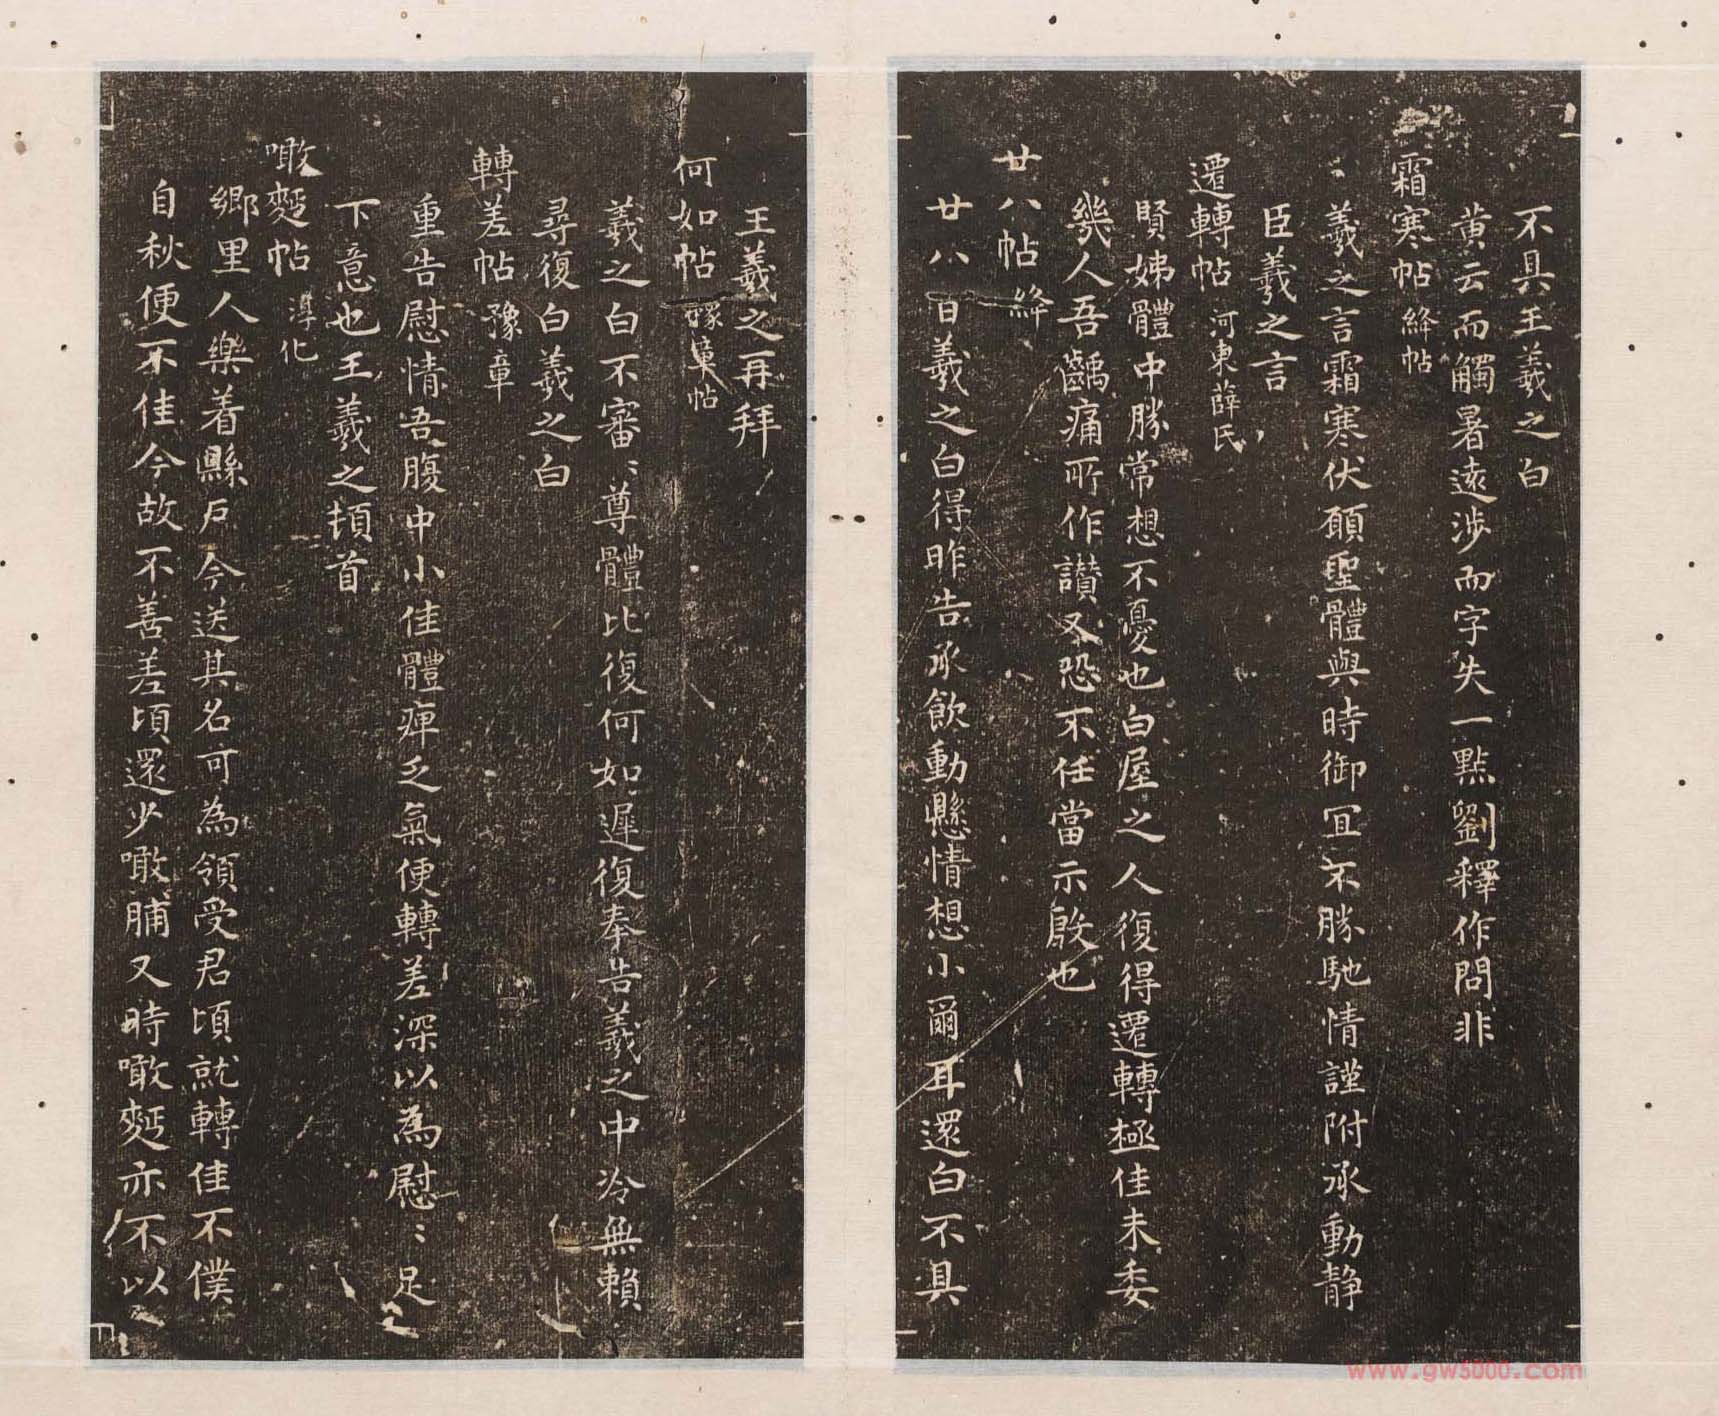 不具王羲之白
黄云而觸暑遠涉而字失一點劉釋作問非
霜寒帖 絳帖
羲之言霜寒伏願聖體與時御宜不勝馳情謹附承動静
臣羲之言
遷轉帖 河東薛氏
賢姊體中勝常想不憂也白屋之人復得遷轉極佳未委
幾人吾齲痛所作讃又恐不任當示殷也
廿八帖 絳
廿八日羲之白得昨告承飲動懸情想小爾耳還白不具
王羲之再拜
何如帖
羲之白不審〻尊體比復何如遲復奉告羲之中冷無賴
尋復白羲之白
轉差帖 豫章
重告慰情吾腹中小佳體痺乏氣便轉差深以為慰〻足
下意也王羲之頓首
噉麪帖 淳化
鄉里人樂着縣户今送其名可為領受君頃就轉佳不僕
自秋便不佳今故不善差頃還少噉脯又時噉麪亦不以
www.gw5000.com